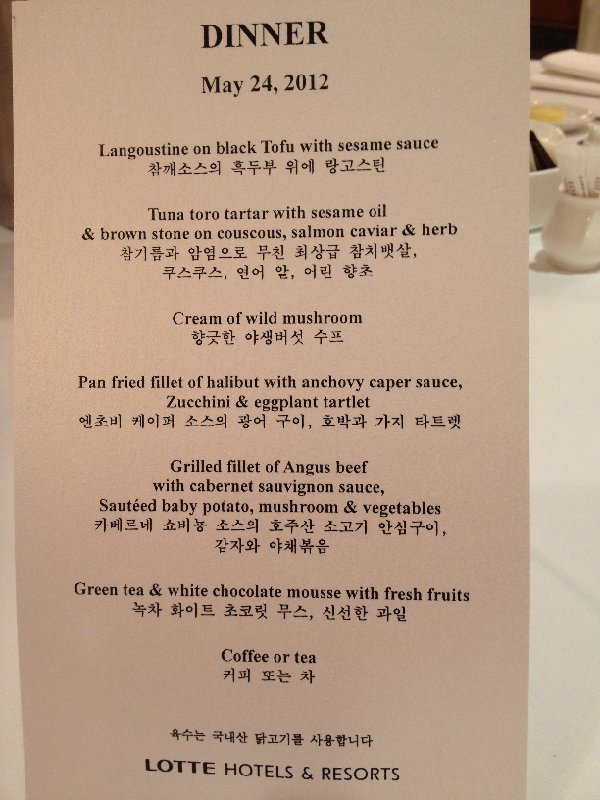 DINNER
May 24, 2012
Langoustine on black Tofu with sesame sauce
참깨소스의 흑두부 위에 랑고스틴
Tuna toro tartar with sesame oil
& brown stone on couscous, salmon caviar & herb
참기름과 암염으로 무친 최상급 참치뱃살,
쿠스쿠스, 연어 알, 어린 향초
Cream of wild mushroom
향긋한 야생버섯 수프
Pan fried fillet of halibut with anchovy caper sauce,
Zucchini & eggplant tartlet
엔초비 케이퍼 소스의 광어 구이, 호박과 가지 타트렛
Grilled fillet of Angus beef
with cabernet sauvignon sauce,
Sautéed baby potato, mushroom & vegetables
카베르네 쇼비뇽 소스의 호주산 소고기 안심구이,
감자와 야채볶음
Green tea & white chocolate mousse with fresh fruits
녹차 화이트 초코릿 무스, 신선한 과일
Coffee or tea
커피 또는 차
육수는 국내산 닭고기를 사용합니다
LOTTE HOTELS & RESORTS